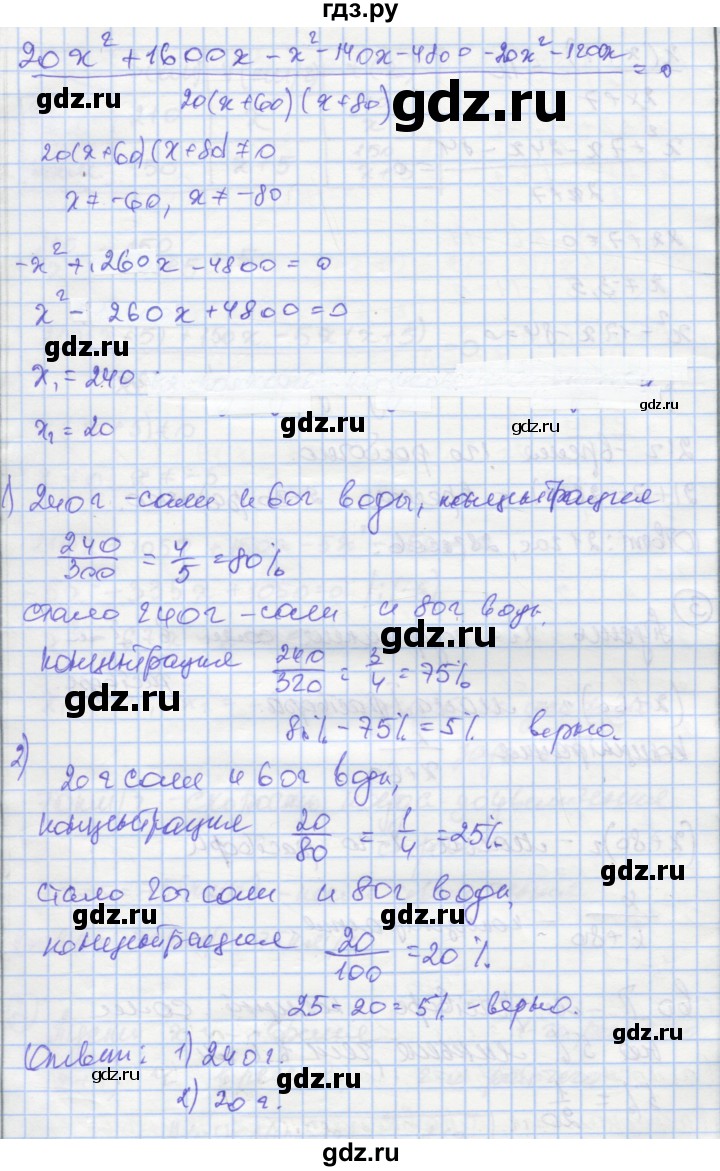 гдз.ру
20x² + 1600x - x² - 140x - 4800 - 20x² - 1200x = 0
gdz.ru gdz.ru
20(x+60)(x+80)
20(x+60)(x+80) ≠ 0
x ≠ -60, x ≠ -80
-x² + 260x - 4800 = 0
x² - 260x + 4800 = 0
gdz.ru gdz.ru
x₁ = 240
gdz.ru
x₂ = 20 gdz.ru gdz.ru
1) 240г - соли и 60г воды, концентрация
240/300 = 4/5 = 80%
gdz.ru gdz.ru
стало 240г - соли и 80г воды,
gdz.ru
концентрация 240/320 = 3/4 = 75%
gdz.ru
80% - 75% = 5% верно.
2)
20г соли и 60г воды,
gdz.ru
концентрация 20/80 = 1/4 = 25%
gdz.ru
стало 20г соли и 80г воды,
gdz.ru gdz.ru
концентрация 20/100 = 20%
25 - 20 = 5% - верно.
gdz.ru
Ответ: 1) 240г.
gdz.ru gdz.ru
2) 20г.
gdz.ru